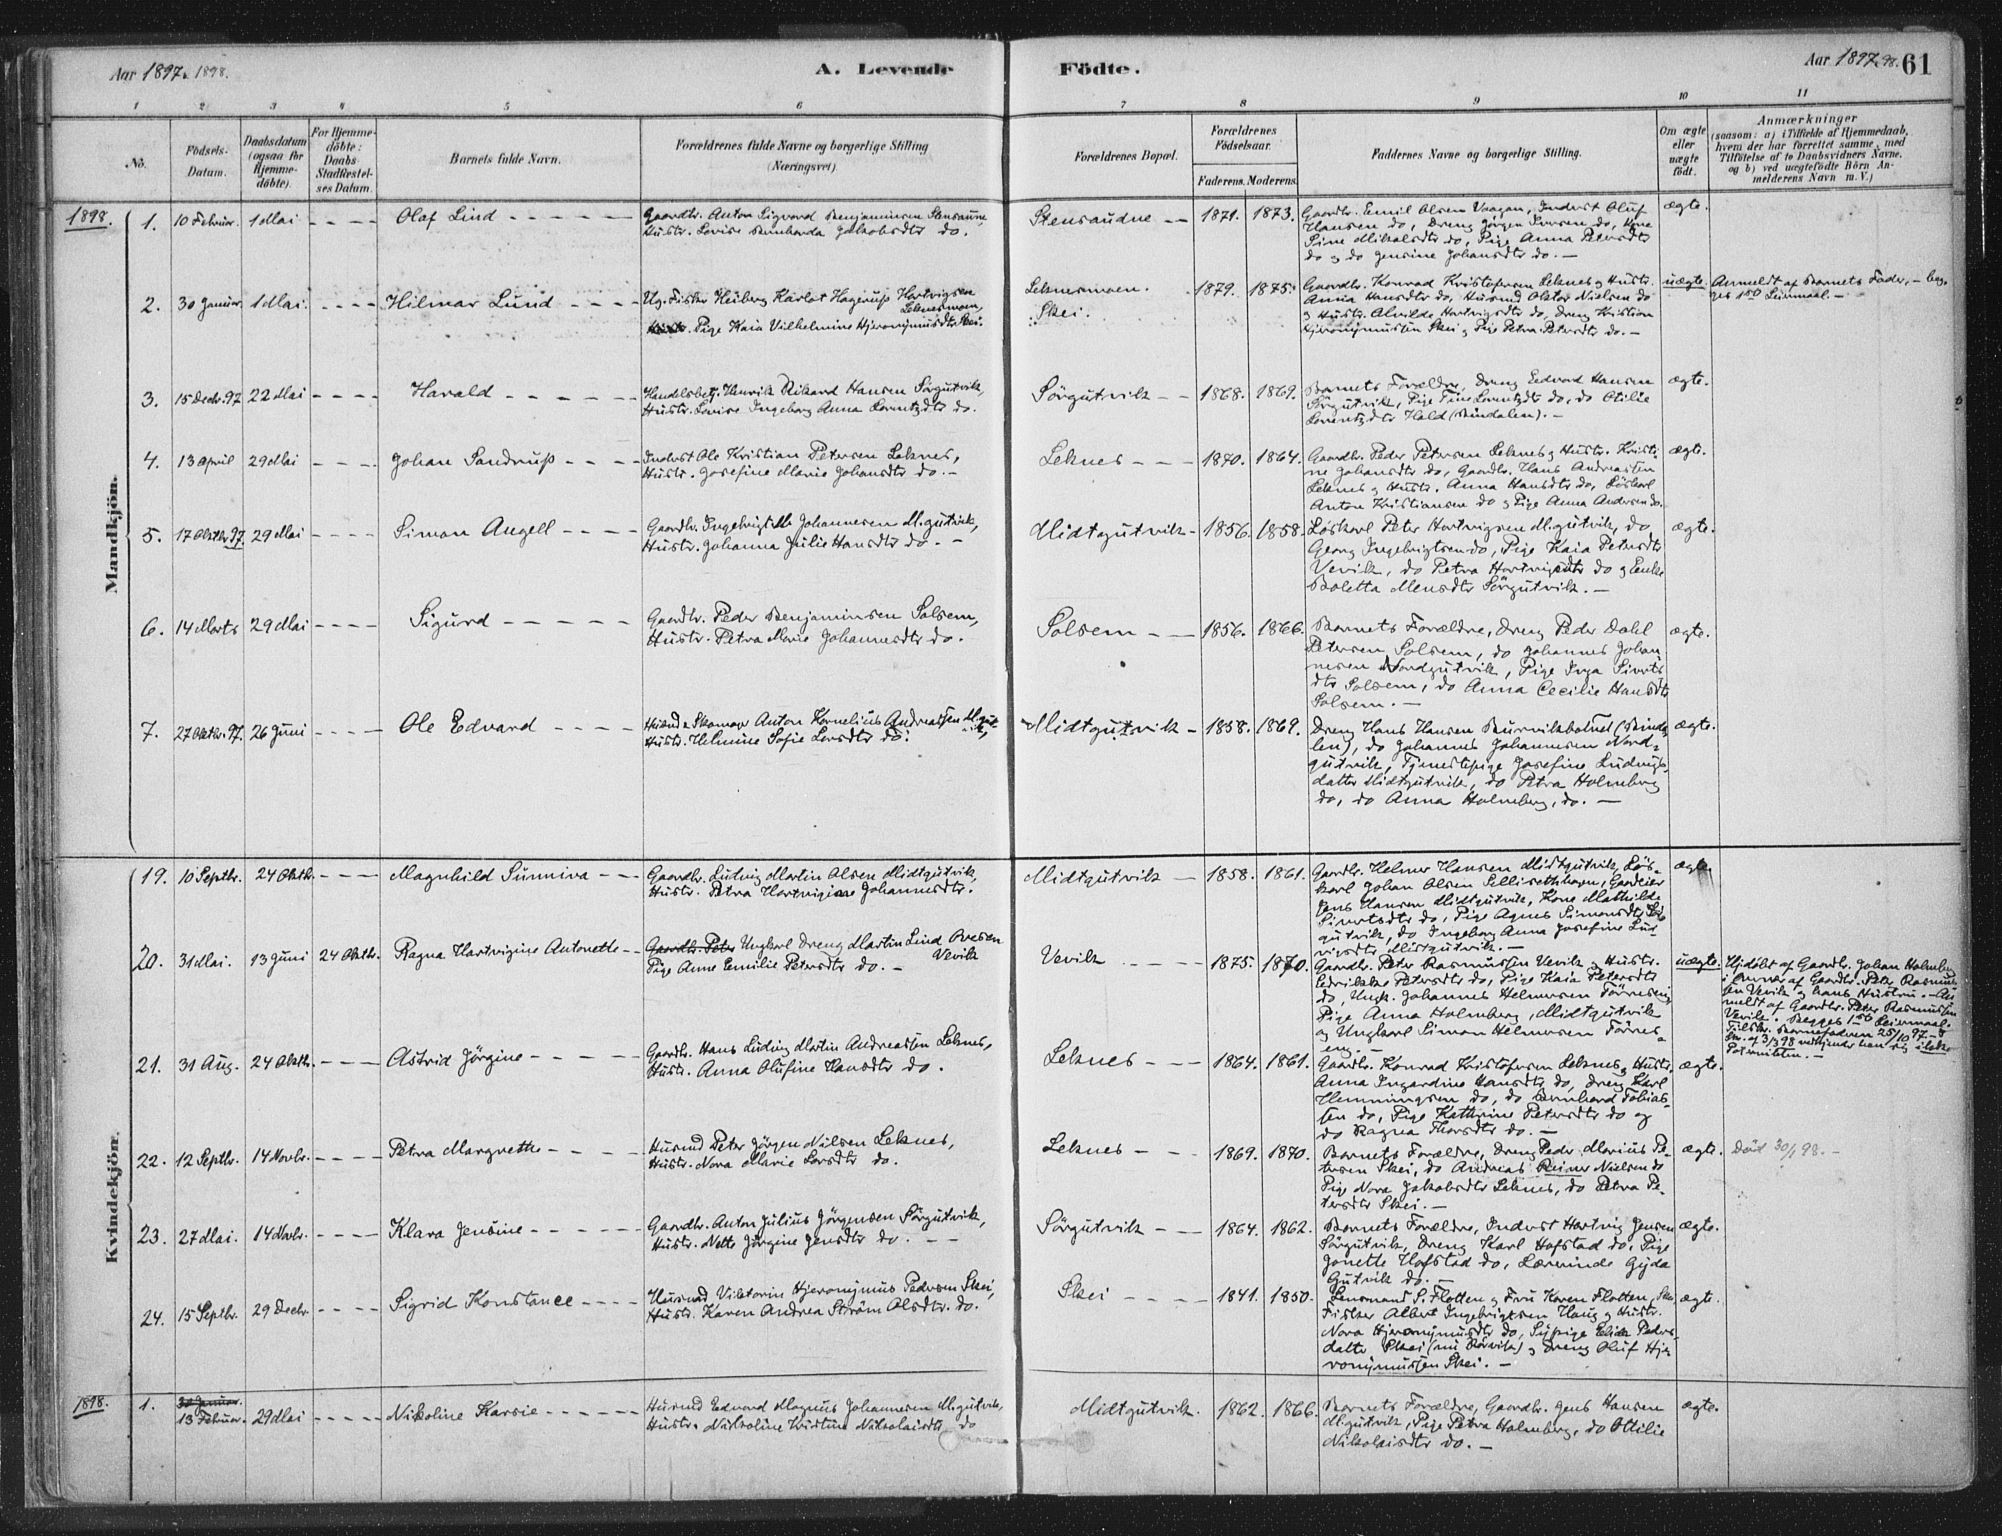 Aar 1897. 1898.
A. Levende Födte.
Aar 1897. 98. 61
1 2 3 4 5 6 7 8 9 10 11
No.
Födsels-Datum.
Daabsdatum (ogsaa for Hjemme-döbte).
For Hjemme-döbte: Daabs-Stadfæstel-ses Datum.
Barnets fulde Navn.
Forældrenes fulde Navne og borgerlige Stilling (Næringsvei).
Forældrenes Bopæl.
Forældrenes Födselsaar.
Faderens. Moderens.
Faddernes Navne og borgerlige Stilling.
Om ægte eller uægte födt.
Anmærkninger
(saasom: a) i Tilfælde af Hjemmedaab, hvem der har forrettet samme, med Tilföielse af to Daabsvidners Navne, og b) ved uægtefödte Börn An-melderens Navn m. V.)
Mandkjön.
1898.
1. 10 Februar. 1 Mai Olaf Lind
Gaardbr. Anton Sigvard Benjaminsen Stensaudne,
Hustr. Lovise Bernharda Jakobsdtr do.
Stensaudne 1871. 1873.
Gaardbr. Emil Olsen Vaagan, Inderst Oluf
Hansen do, Dreng Jørgen Iversen do, Kone
Sine Mikalsdtr do, Pige Anna Petersdtr
do og do Jensine Johansdtr do.—
ægte.
2. 30 Januar. 1 Mai. Hilmar Lund
Ug. Fisker Heiberg Karlot Hagerup Hartvigsen
Leknesmoen,
Pige Kaia Vilhelmine Hjeronymusdtr Skei.
Leknesmoen.
Skei.
1879. 1875.
Gaardbr. Konrad Kristofersen Leknes og Hustr.
Anna Hansdtr do, Husmd Oktav Nielsen do
og Hustr. Alvilde Hartvigsdtr do, Dreng Kristian
Hjeronymussen Skei og Pige Petra Petersdtr do.—
uægte.
Anmeldt af Barnets Fader, — beg-
ges 1ste Leiermaal.—
3. 15 Decbr. 97 22 Mai Harald
Handelsbetj. Henrik Rikard Hansen Sørgutvik,
Hustr. Lovise Ingeborg Anna Lorentzdtr do.
Sørgutvik 1868. 1869.
Barnets Forældre, Dreng Edvard Hansen
Sørgutvik, Pige Tine Lorentzdtr do, do Otilie
Lorentzdtr Hald (Bindalen).—
ægte.
4. 13 April 29 Mai Johan Sandrup
Inderst Ole Kristian Petersen Leknes,
Hustr. Josefine Marie Johansdtr do.—
Leknes 1870. 1864.
Gaardbr. Peder Petersen Leknes og Hustr. Kristi-
ne Johansdtr do, Gaardbr. Hans Andreassen
Leknes og Hustr. Anna Hansdtr do, Løskarl
Anton Kristiansen do og Pige Anna Andersen do.
ægte.
5. 17 Oktbr. 97. 29 Mai Simon Angell
Gaardbr. Ingebrigt M. Johannesen M.gutvik,
Hustr. Johanna Julie Hansdtr do.
Midtgutvik 1856. 1858.
Løskarl Peter Hartvigsen M.gutvik, do
Georg Ingebrigtsen do, Pige Kaia Petersdtr
Vevik, do Petra Hartvigsdtr do og Enke
Boletta Monsdtr Sørgutvik.—
ægte.
6. 14 Marts 29 Mai Sigurd
Gaardbr. Peder Benjaminsen Solsem,
Hustr. Petra Marie Johannesdtr do.
Solsem 1856. 1866.
Barnets Forældre, Dreng Peder Dahl
Petersen Solsem, do Johannes Johan-
nesen Nordgutvik, Pige Inga Siverts-
dtr Solsem, do Anna Cecilie Hansdtr
Solsem.—
ægte.
7. 27 Oktbr. 97. 26 Juni Ole Edvard
Husmd & Skomager Anton Kornelius Andreassen M.gut-
vik,
Hustr. Helmine Sofie Larsdtr do.
Midtgutvik 1858. 1869.
Dreng Hans Hansen Burvikbotnet (Binda-
len), do Johannes Johannesen Nord-
gutvik, Tjenestepige Josefine Ludvigs-
datter Midtgutvik, do Petra Holmberg
do, do Anna Holmberg, do.—
ægte.
Kvindekjön.
19. 10 Septbr. 24 Oktbr. Magnhild Sunniva
Gaardbr. Ludvig Martin Olsen Midtgutvik,
Hustr. Petra Hartvigine Johannesdtr.
Midtgutvik 1858. 1861.
Gaardbr. Helmer Hansen Midtgutvik, Løs-
karl Johan Olsen Sellisethhagen, Gaardeier
Jens Hansen Midtgutvik, Kone Mathilde
Sivertsdtr do, Pige Agnes Simonsdtr
gutvik, do Ingeborg Anna Josefine Lud-
vigsdtr Midtgutvik.—
ægte.
20. 31 Mai. 13 Juni 24 Oktbr. Ragna Hartvigine Antonette
Gaardbr. Peter Ungkarl Dreng Martin Lind Ovesen
Vevik
Pige Anne Emilie Petersdtr do.—
Vevik 1875. 1870.
Gaardbr. Peter Rasmussen Vevik og Hustr.
Edvikke Petersdtr do, Pige Kaia Petersdtr
do, Ungk. Johannes Helmersen Tørresing
Pige Anna Holmberg, Midtgutvik
og Ungkarl Simon Helmersen Tørres-
eng.—
uægte.
Hjdøbt af Gaardbr. Johan Holmberg
i Overvær af Gaardbr. Peter Rasmus-
sen Vevik og hans Hustru.— An-
meldt af Gaardbr. Peter Rasmussen
Vevik. Begges 1ste Leiermaal.
Tilskr. Barnefaderen 25/10 97.—
Skr. af 3/3 98 vedkjender han sig ikke
Paterniteten.—
21. 31 Aug. 24 Oktbr. Astrid Jörgine
Gaardbr. Hans Ludvig Martin Andreassen Leknes,
Hustr. Anna Olufine Hansdtr do.
Leknes 1864. 1861.
Gaardbr. Konrad Kristofersen Leknes og Hustr.
Anna Ingardine Hansdtr do, Dreng Karl
Hemmingsen do, do Bernhard Tobias-
sen do, Pige Kathrine Petersdtr do og
do Ragna Thorsdtr do.—
ægte.
22. 12 Septbr. 14 Novbr. Petra Margrethe
Husmd Peter Jörgen Nilsen Leknes,
Hustr. Nora Marie Larsdtr do.
Leknes 1869. 1870.
Barnets Forældre, Dreng Peder Marius Pe-
tersen Skei, do Andreas Reiner Nielsen do
Pige Nora Jakobsdtr Leknes, do Petra Pe-
tersdtr Skei.—
ægte. Död 30/1 98.—
23. 27 Mai. 14 Novbr. Klara Jensine
Gaardbr. Anton Julius Jörgensen Sørgutvik,
Hustr. Nette Jörgine Jensdtr do.
Sørgutvik 1864. 1862.
Barnets Forældre, Inderst Hartvig Jensen
Sørgutvik, Dreng Karl Hofstad do, Pige
Jonette Hofstad do, Lærerinde Gyda
Gutvik do.—
ægte.
24. 15 Septbr. 29 Decbr. Sigrid Konstance
Husmd Viktorin Hjeronymus Pedersen Skei,
Hustr. Karen Andrea Strøm Olsdtr. do.
Skei 1841. 1850.
Lensmand S. Flotten og Fru Karen Flotten, Skei,
Fisker Albert Ingebrigtsen Haug og Hustr.
Nora Hjeronymusdtr do, Sypige Elida Peders-
datter Skei (nu Rørvik) og Dreng Oluf Hje-
ronymussen Skei.—
ægt.
1898.
1. 30 Januar.
13 Februar. 29 Mai Nikoline Karsie
Husmd Edvard Magnus Johannesen M.gutvik,
Hustr. Nikoline Kristine Nikolaisdtr do
Midtgutvik. 1862. 1866.
Barnets Forældre, Gaardbr. Jens Hansen
M.gutvik, Pige Petra Holmberg, do Ottilie
Nikolaisdtr do.—
ægte.